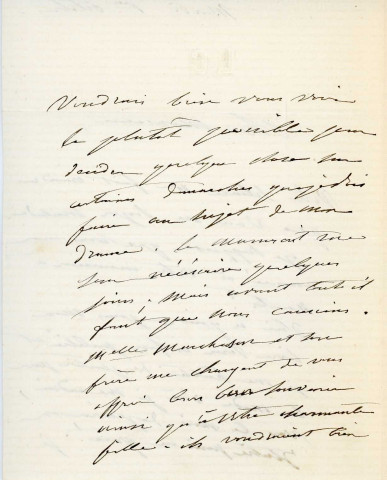 Voudrais bien vous voir
le plutôt possible pour
décider quelque chose sur
certaines démarches que je dois
faire au sujet de mon
drame. Le manuscrit me
sera nécéssaire quelques
jours. Mais avant tout il
faut que nous causions.
Melle et son
frère me chargent de vous
offrir leurs bons souvenirs
ainsi qu'à votre charmante
fille. ils voudraient bien